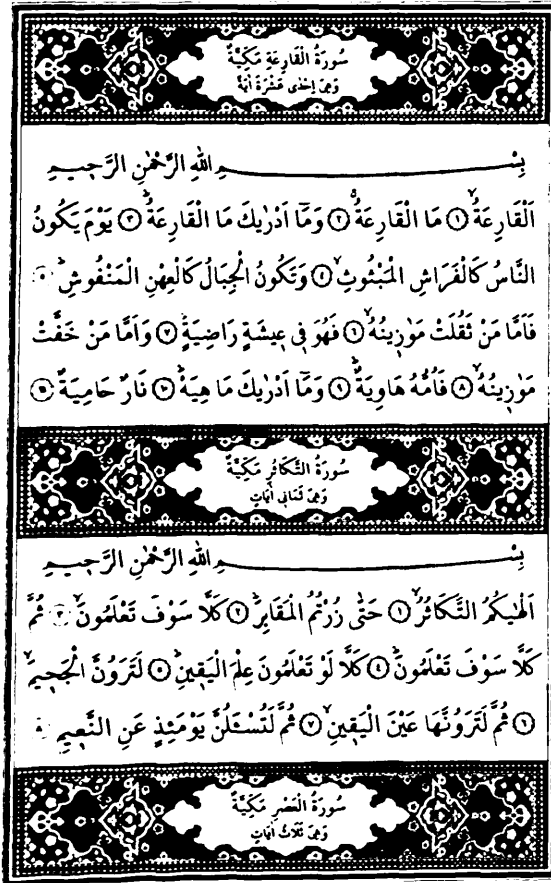 سُورَةُ الْقَارِعَةِ مَكِّيَّةٌ
وَهِىَ اِحْدٰى عَشْرَةَ اٰيَةً
بِسْمِ اللّٰهِ الرَّحْمٰنِ الرَّحِيمِ
اَلْقَارِعَةُۙ ﴿١﴾ مَا الْقَارِعَةُۚ ﴿٢﴾ وَمَٓا اَدْرٰيكَ مَا الْقَارِعَةُۜ ﴿٣﴾ يَوْمَ يَكُونُ
النَّاسُ كَالْفَرَاشِ الْمَبْثُوثِۙ ﴿٤﴾ وَتَكُونُ الْجِبَالُ كَالْعِهْنِ الْمَنْفُوشِۜ ﴿٥﴾
فَاَمَّا مَنْ ثَقُلَتْ مَوَازٖينُهُۙ ﴿٦﴾ فَهُوَ فٖى عٖيشَةٍ رَاضِيَةٍۜ ﴿٧﴾ وَاَمَّا مَنْ خَفَّتْ
مَوَازٖينُهُۙ ﴿٨﴾ فَاُمُّهُ هَاوِيَةٌۜ ﴿٩﴾ وَمَٓا اَدْرٰيكَ مَا هِيَهْۜ ﴿١٠﴾ نَارٌ حَامِيَةٌ ﴿١١﴾
سُورَةُ التَّكَاثُرِ مَكِّيَّةٌ
وَهِىَ ثَمَانٖى اٰيَاتٍ
بِسْمِ اللّٰهِ الرَّحْمٰنِ الرَّحِيمِ
اَلْهٰيكُمُ التَّكَاثُرُۙ ﴿١﴾ حَتّٰى زُرْتُمُ الْمَقَابِرَۜ ﴿٢﴾ كَلَّا سَوْفَ تَعْلَمُونَۙ ﴿٣﴾ ثُمَّ
كَلَّا سَوْفَ تَعْلَمُونَۜ ﴿٤﴾ كَلَّا لَوْ تَعْلَمُونَ عِلْمَ الْيَقٖينِۜ ﴿٥﴾ لَتَرَوُنَّ الْجَحٖيمَۙ
﴿٦﴾ ثُمَّ لَتَرَوُنَّهَا عَيْنَ الْيَقٖينِۙ ﴿٧﴾ ثُمَّ لَتُسْـَٔلُنَّ يَوْمَئِذٍ عَنِ النَّعٖيمِ ﴿٨﴾
سُورَةُ الْعَصْرِ مَكِّيَّةٌ
وَهِىَ ثَلَاثُ اٰيَاتٍ